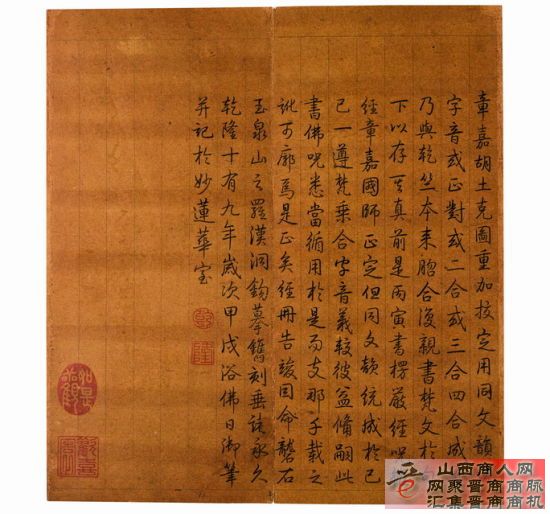 章嘉胡土克圖重加挍定用同文韻
字音或正對或二合或三合四合成
乃與乾竺本來脗合復親書梵文於
下以存其真前是丙寅書楞嚴經
經章嘉國師正定但同文韻統成於己
已一遵梵乗合字音義較彼益備嗣此
書佛呪悉當循用於是而支那千載之
訛可廓焉是正矣經冊告竣因命礱石
玉泉山之羅漢洞鉤摹鐫刻垂諸永久
乾隆十有九年歲次甲戌浴佛日御筆
并記於妙蓮華室
山西商人网
网聚晋商商脉
汇集晋商商机